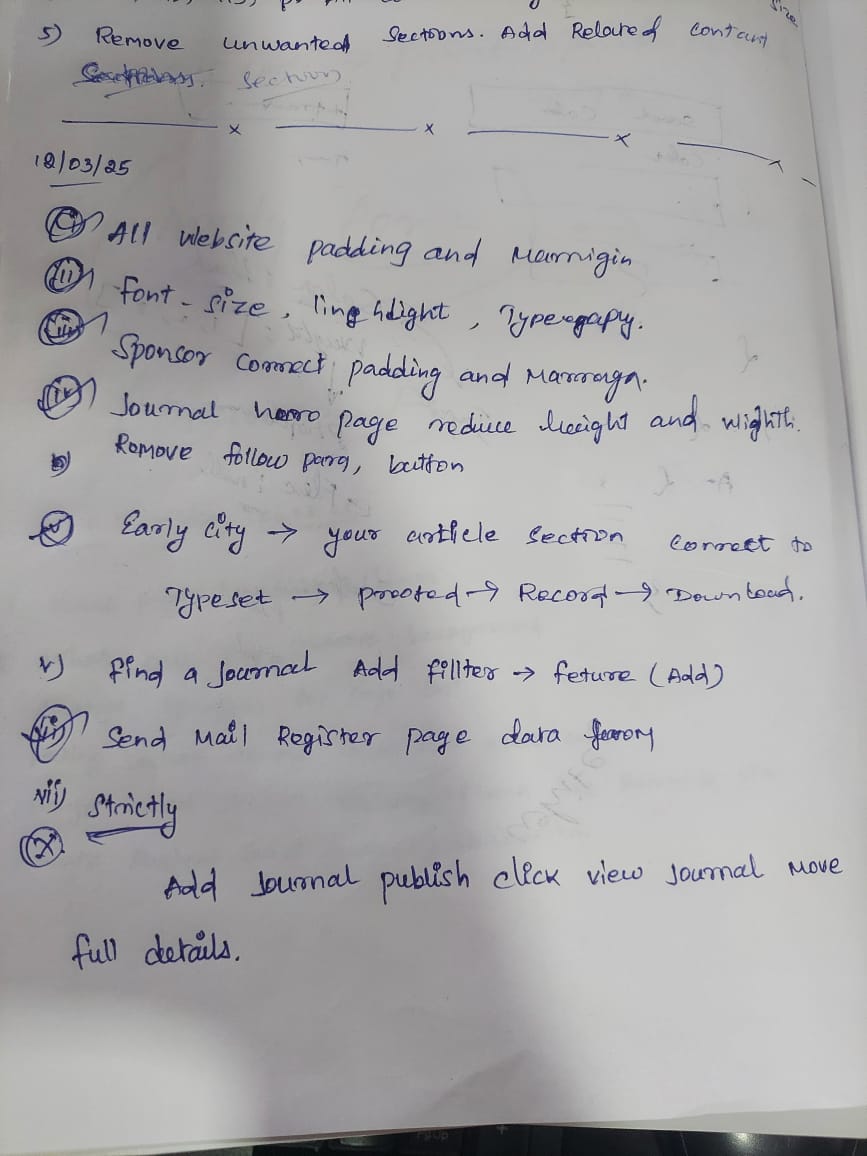 size
5) Remove unwanted Sections. Add Related contant
Section
12/03/25
i) All website padding and Marnigin
ii) font-size, ling hdight, Typergapy.
iii) Sponsor correct padding and Marrorgn.
iv) Journal hero page reduce height and wighth.
b) Remove follow para, button
v) Early city → your article section correct to
Typeset → prooted → Record → Download.
v) find a journal Add fillter → feture (Add)
vii) Send Mail Register page data
vii) Strictly
x
Add Journal publish click view Journal Move
full details.